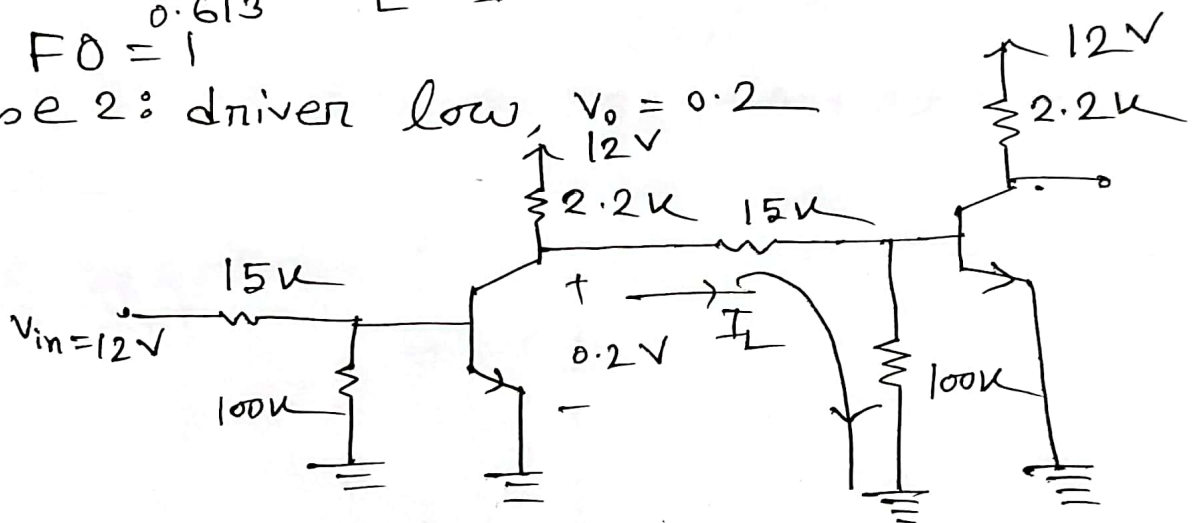 0.613
FO = 1
se 2: driver low, V₀ = 0.2
12V
2.2K
12V
2.2K
15K
15K
Vin=12V
+
0.2V
-
I_L
100K
100K